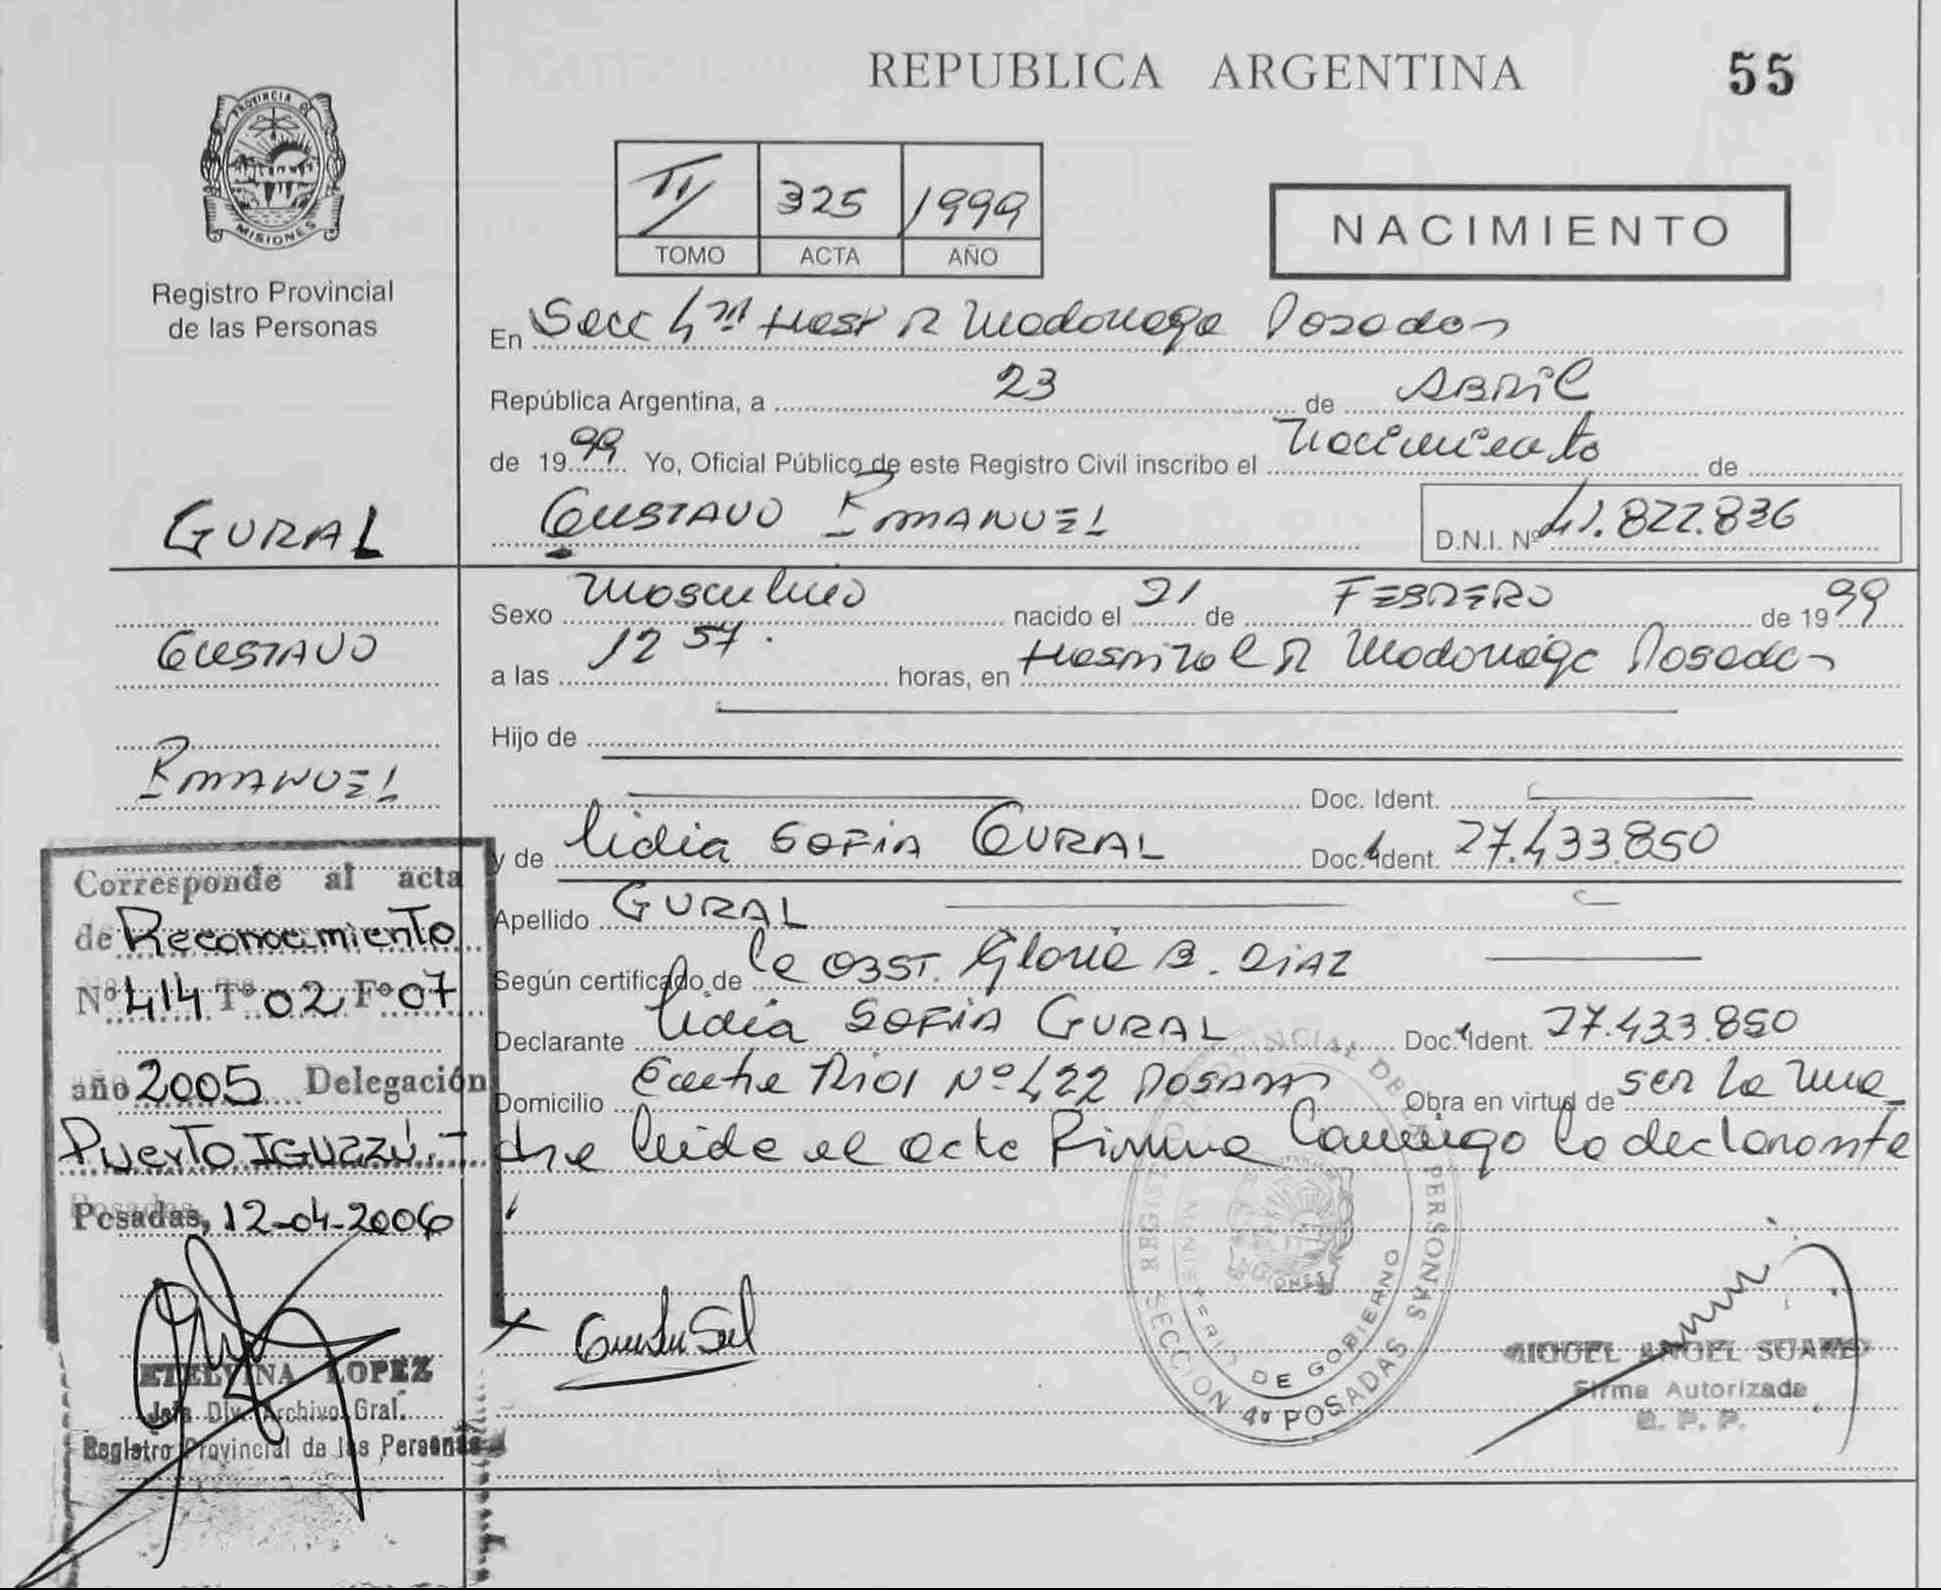 REPUBLICA ARGENTINA
55
PROVINCIA DE
MISIONES
Registro Provincial
de las Personas
II 325 1999
TOMO ACTA AÑO
NACIMIENTO
En Secc 4ta Hosp R Madariaga Posadas
República Argentina, a 23 de ABRIL
de 1999 Yo, Oficial Público de este Registro Civil inscribo el Nacimiento de
GUSTAVO EMANUEL
D.N.I. Nº 41.822.836
GURAL
GUSTAVO
EMANUEL
Sexo Masculino nacido el 21 de FEBRERO de 1999
a las 12 57. horas, en Hospital R Madariaga Posadas
Hijo de
Doc. Ident.
y de Lidia SOFIA GURAL Doc. Ident. 27.433.850
Apellido GURAL
Según certificado de la OBST. Gloria B. DIAZ
Declarante Lidia SOFIA GURAL Doc. Ident. 27.433.850
Domicilio Entre Rios Nº 422 POSADAS Obra en virtud de ser la ma
dre leida el acta Firma Conmigo la declarante
Corresponde al acta
de Reconocimiento
Nº 414 Tº 02 Fº 07
año 2005 Delegación
Puerto IGUAZÚ.-
Posadas, 12-04-2006
ETELVINA LOPEZ
Jefa Div. Archivo Gral.
Registro Provincial de las Personas
REGISTRO PROVINCIAL DE LAS PERSONAS
DE GOBIERNO
SECCION 4º POSADAS
MISIONES
MIGUEL ANGEL SUAREZ
Firma Autorizada
R. P. P.